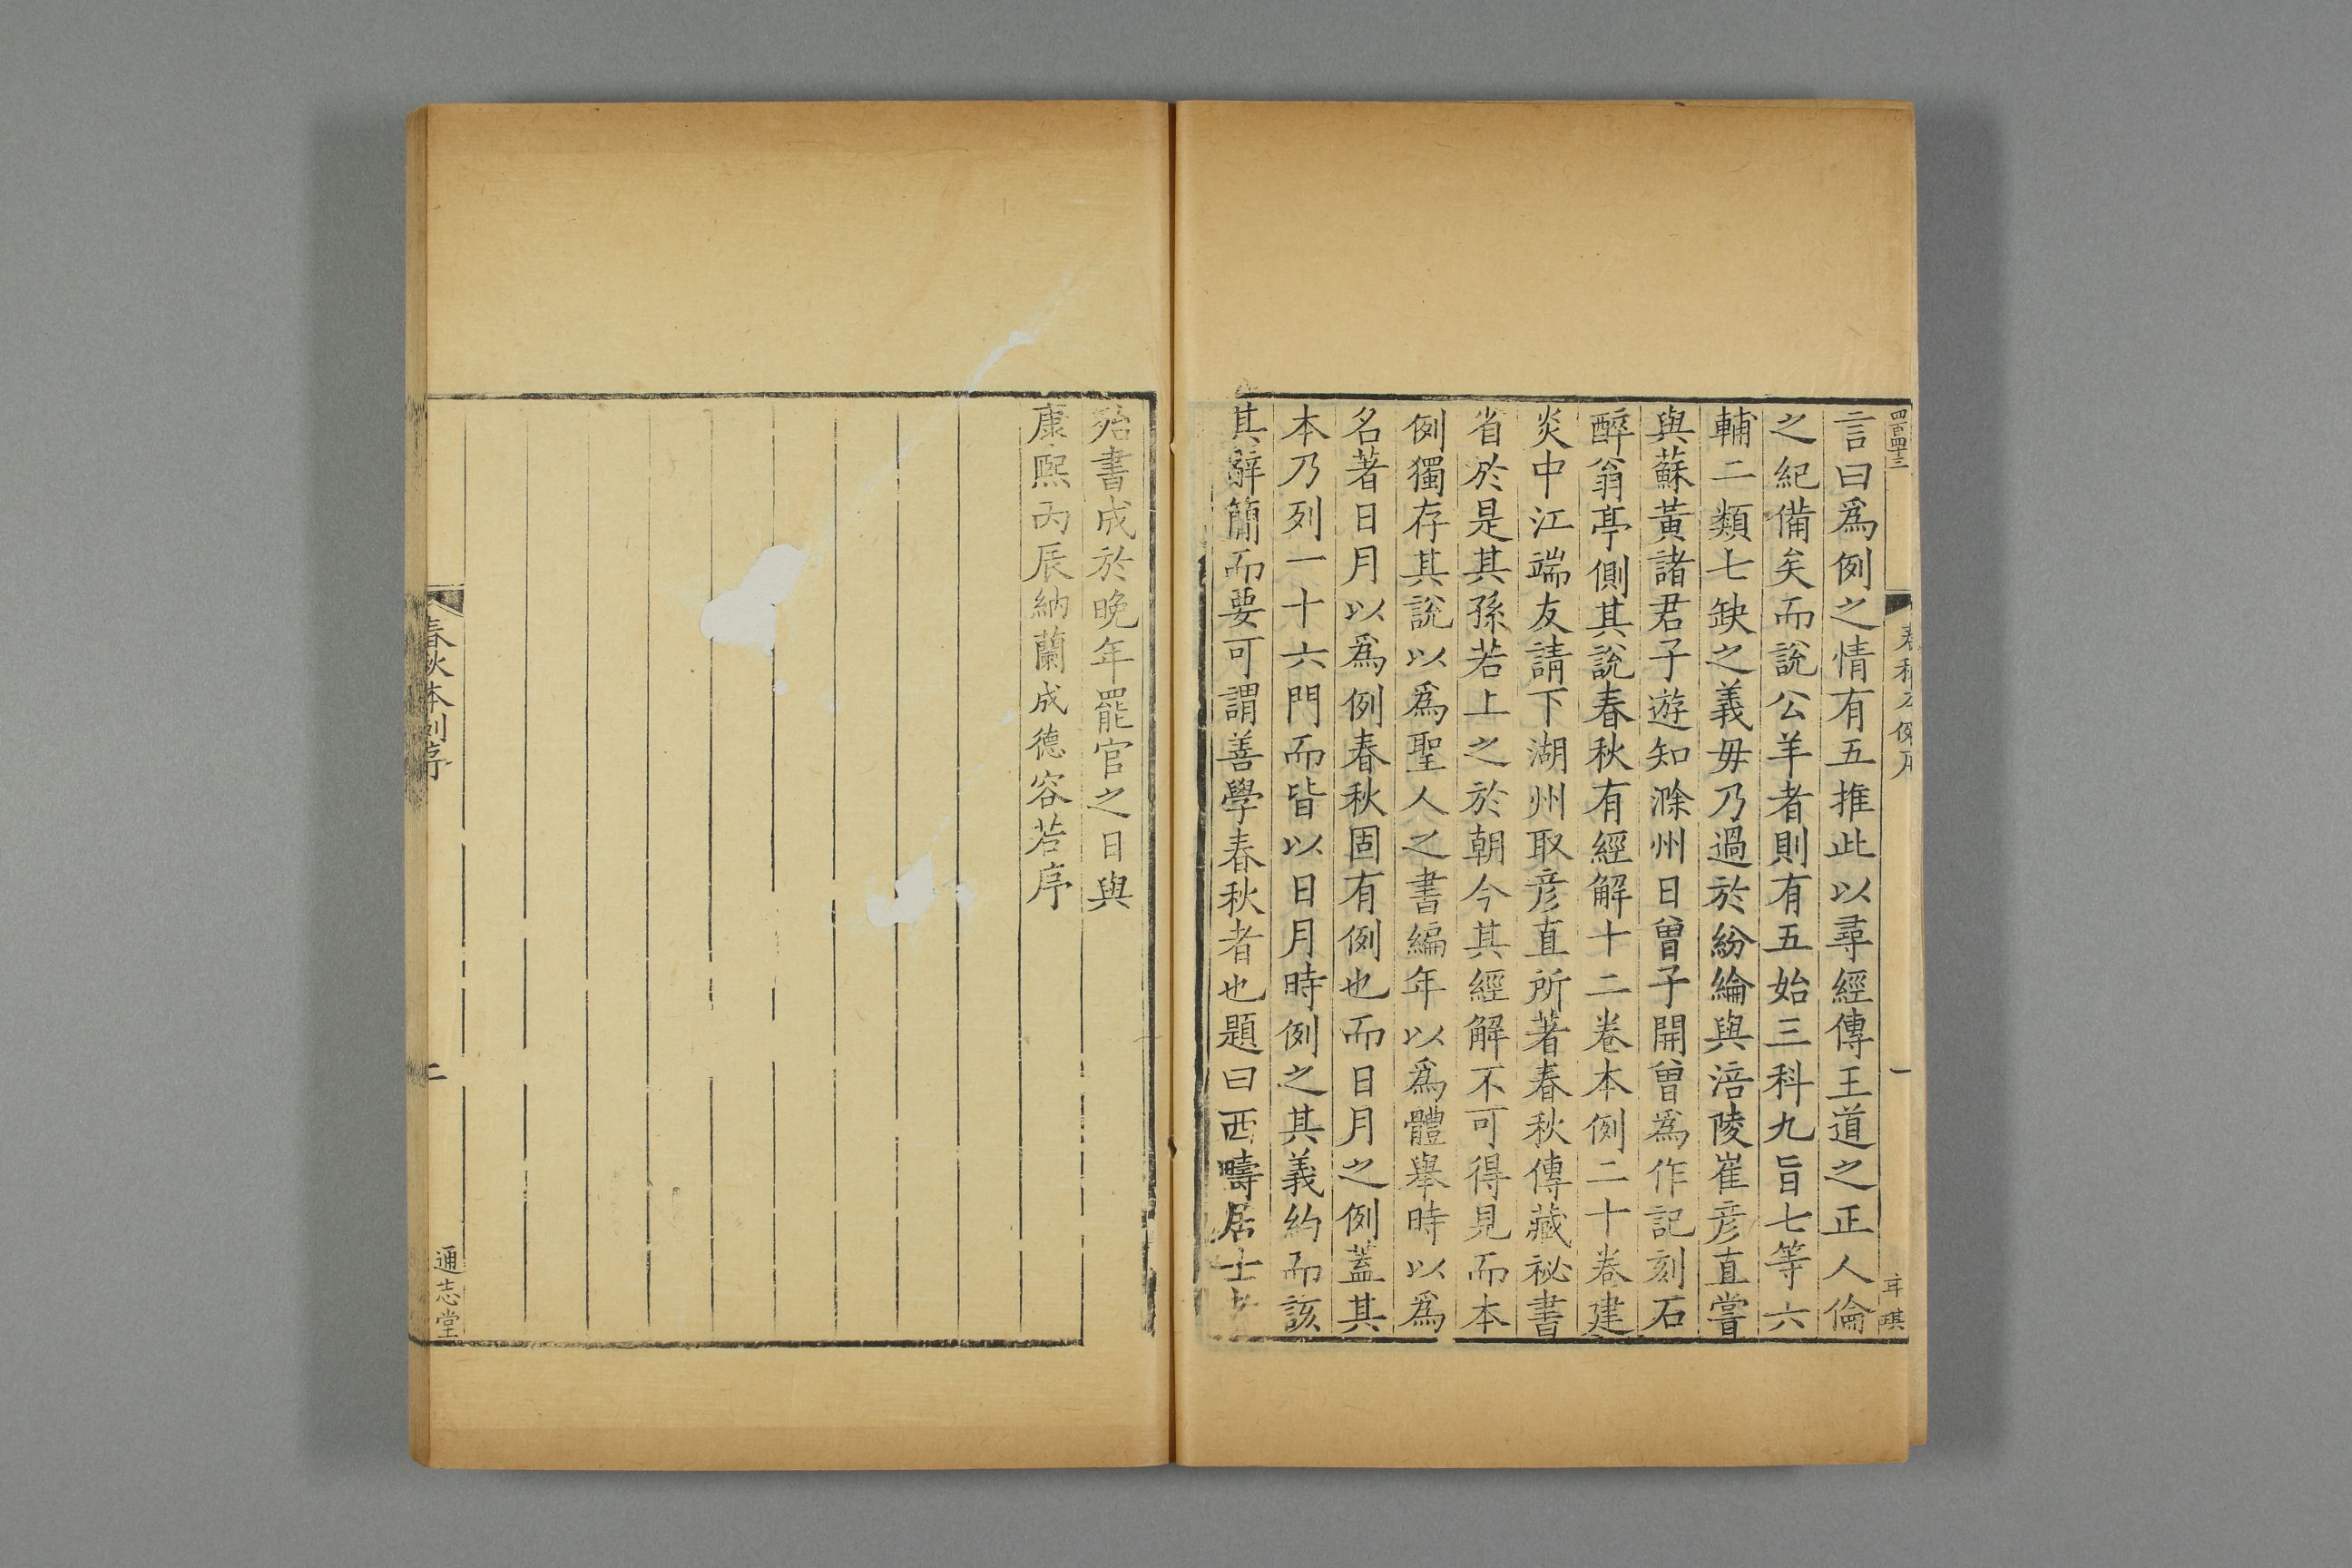 四百四十三
春秋本例序
一
言曰爲例之情有五推此以尋經傳王道之正人倫
之紀備矣而說公羊者則有五始三科九旨七等六
輔二類七缺之義毋乃過於紛綸與涪陵崔彦直嘗
與蘇黃諸君子遊知滁州日曾子開曾爲作記刻石
醉翁亭側其說春秋有經解十二卷本例二十卷建
炎中江端友請下湖州取彦直所著春秋傳藏祕書
省於是其孫若上之於朝今其經解不可得見而本
例獨存其說以爲聖人之書編年以爲體舉時以爲
名著日月以爲例春秋固有例也而日月之例蓋其
本乃列一十六門而皆以日月時例之其義約而該
其辭簡而要可謂善學春秋者也題曰西疇居士者
殆書成於晚年罷官之日與
康熙丙辰納蘭成德容若序
春秋本例序
二
通志堂